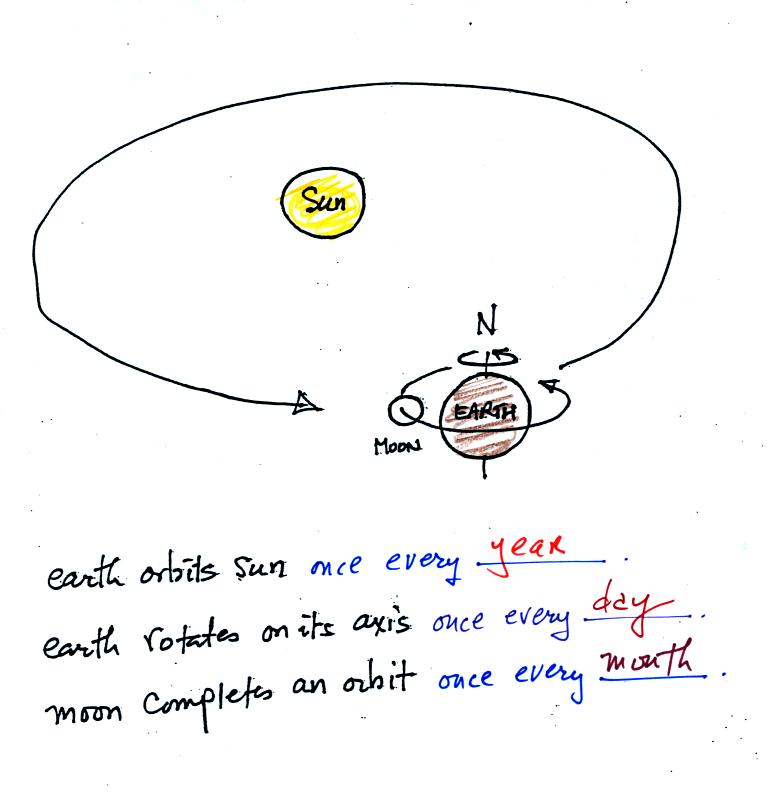 Sun
N
EARTH
MOON
earth orbits Sun once every year.
earth rotates on its axis once every day.
moon completes an orbit once every month.